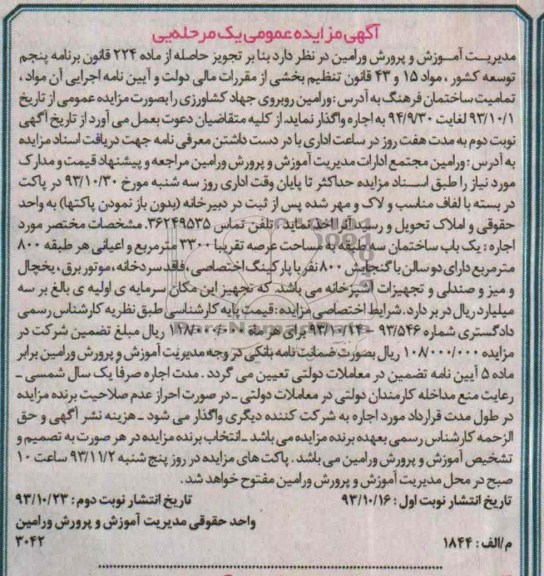 آگهی مزایده عمومی یک مرحله‌یی
مدیریت آمـوزش و پرورش ورامین در نظر دارد بنا بر تجویز حاصله از ماده ۲۲۴ قانون برنامه پنجم
توسعه کشور ، مواد ۱۵ و ۴۳ قانون تنظیم بخشی از مقررات مالی دولت و آیین نامه اجرایی آن مواد ،
تمامیت ساختمان فرهنگ به آدرس : ورامین روبروی جهاد کشاورزی را بصورت مزایده عمومی از تاریخ
۹۳/۱۰/۱ لغایت ۹۴/۹/۳۰ به اجاره واگذار نماید. از کلیه متقاضیان دعوت بعمل می آورد از تاریخ آگهی
نوبت دوم به مدت هفت روز در ساعت اداری با در دست داشتن معرفی نامه جهت دریافت اسناد مزایده
به آدرس : ورامین مجتمع ادارات مدیریت آموزش و پرورش ورامین مراجعه و پیشنهاد قیمت و مدارک
مورد نیاز را طبق اسـناد مزایده حداکثر تا پایان وقت اداری روز سه شنبه مورخ ۹۳/۱۰/۳۰ در پاکت
در بسته با لفاف مناسب و لاک و مهر شده پس از ثبت در دبیرخانه (بدون باز نمودن پاکتها) به واحد
حقوقی و املاک تحویل و رسید اثر اخذ نماید . تلفن تماس ۳۶۲۴۹۵۳۵. مشخصات مختصر مورد
اجاره : یک باب ساختمان سه طبقه به مساحت عرصه تقریبا ۳۳۰۰ مترمربع و اعیانی هر طبقه ۸۰۰
مترمربع دارای دو سالن با گنجایش ۸۰۰ نفر با پارکینگ اختصاصی، فاقد سردخانه، موتور برق، یخچال
و میز و صندلی و تجهیزات آشپزخانه می باشد که تجهیز این مکان سرمایه ی اولیه ی بالغ بر سه
میلیارد ریال در بر دارد. شرایط اختصاصی مزایده : قیمت پایه کارشناسی طبق نظریه کارشناس رسمی
دادگستری شماره ۹۳/۵۴۶ – ۹۳/۱۰/۱۴ برای هر ماه ۱۰۸/۰۰۰/۰۰۰ ریال مبلغ تضمین شرکت در
مزایده ۱۰۸/۰۰۰/۰۰۰ ریال بصورت ضمانت نامه بانکی در وجه مدیریت آموزش و پرورش ورامین برابر
ماده ۵ آیین نامه تضمین در معاملات دولتی تعیین می گردد . مدت اجاره صرفا یک سال شمسی ـ
رعایت منع مداخله کارمندان دولتی در معاملات دولتی ـ در صورت احراز عدم صلاحیت برنده مزایده
در طول مدت قرارداد مورد اجاره به شرکت کننده دیگری واگذار می شود ـ هزینه نشر آگهی و حق
الزحمه کارشناس رسمی بعهده برنده مزایده می باشد ـ انتخاب برنده مزایده در هر صورت به تصمیم و
تشخیص آموزش و پرورش ورامین می باشد . پاکت های مزایده در روز پنج شنبه ۹۳/۱۱/۲ ساعت ۱۰
صبح در محل مدیریت آموزش و پرورش ورامین مفتوح خواهد شد.
تاریخ انتشار نوبت اول : ۹۳/۱۰/۱۶ تاریخ انتشار نوبت دوم : ۹۳/۱۰/۲۳
واحد حقوقی مدیریت آموزش و پرورش ورامین
م/الف : ۱۸۴۴ ۳۰۴۲